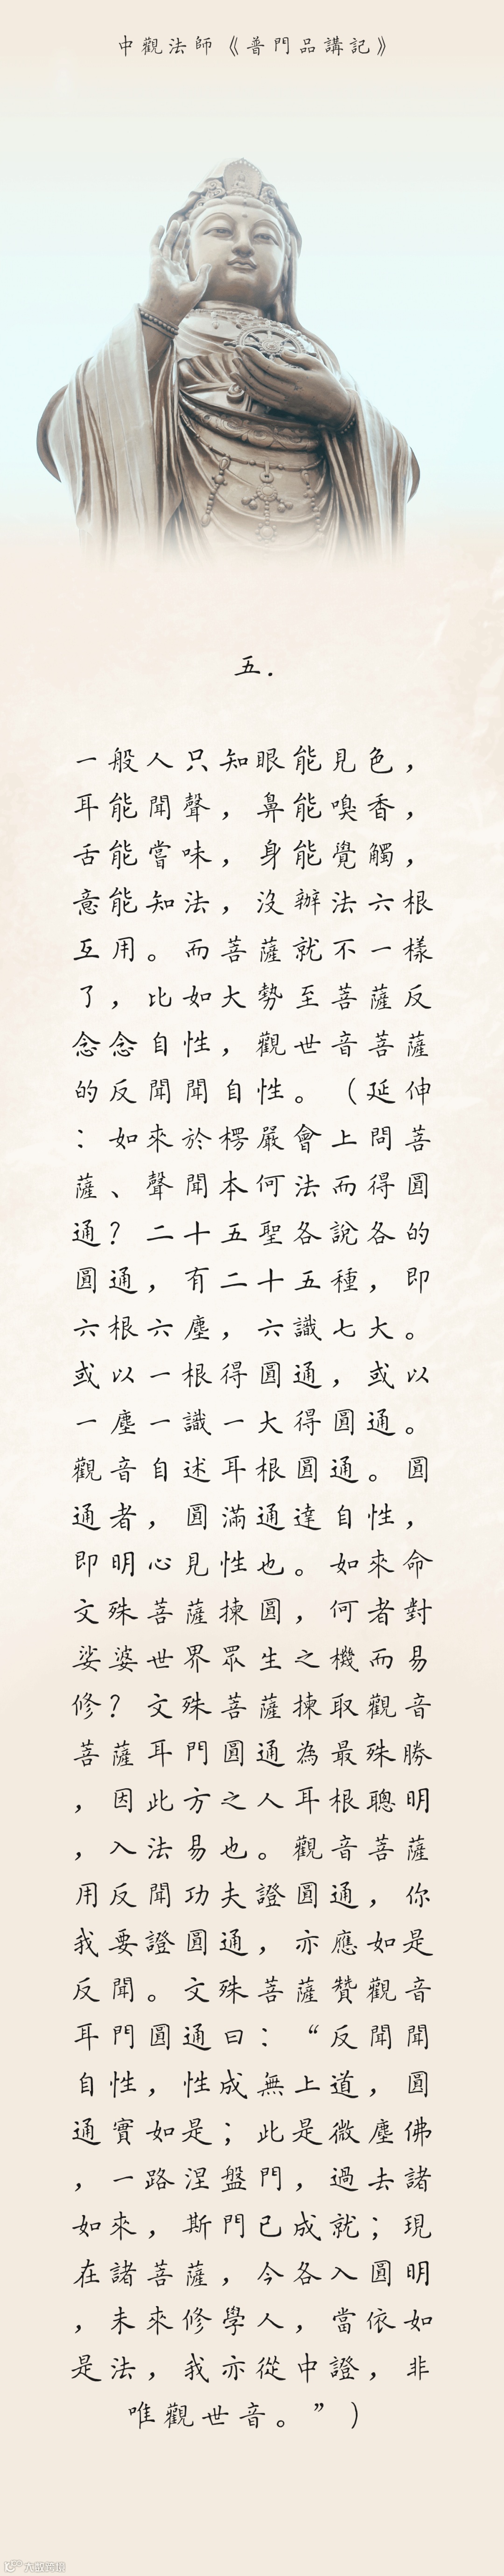 中觀法師《普門品講記》
五.
一般人只知眼能見色，
耳能聞聲，鼻能嗅香，
舌能嘗味，身能覺觸，
意能知法，沒辦法六根
互用。而菩薩就不一樣
了，比如大勢至菩薩反
念念自性，觀世音菩薩
的反聞聞自性。（延伸
：如來於楞嚴會上問菩
薩、聲聞本何法而得圓
通？二十五聖各說各的
圓通，有二十五種，即
六根六塵，六識七大。
或以一根得圓通，或以
一塵一識一大得圓通。
觀音自述耳根圓通。圓
通者，圓滿通達自性，
即明心見性也。如來命
文殊菩薩揀圓，何者對
娑婆世界眾生之機而易
修？文殊菩薩揀取觀音
菩薩耳門圓通為最殊勝
，因此方之人耳根聰明
，入法易也。觀音菩薩
用反聞功夫證圓通，你
我要證圓通，亦應如是
反聞。文殊菩薩贊觀音
耳門圓通曰：“反聞聞
自性，性成無上道，圓
通實如是；此是微塵佛
，一路涅盤門，過去諸
如來，斯門已成就；現
在諸菩薩，今各入圓明
，未來修學人，當依如
是法，我亦從中證，非
唯觀世音。”）